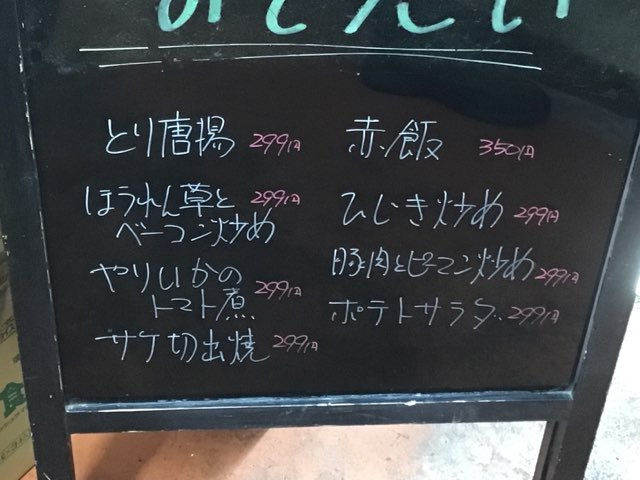 とり唐揚 299円
ほうれん草と 299円
ベーコン炒め
やりいかの
トマト煮 299円
サケ切出焼 299円
赤飯 350円
ひじき炒め 299円
豚肉とピーマン炒め 299円
ポテトサラダ 299円